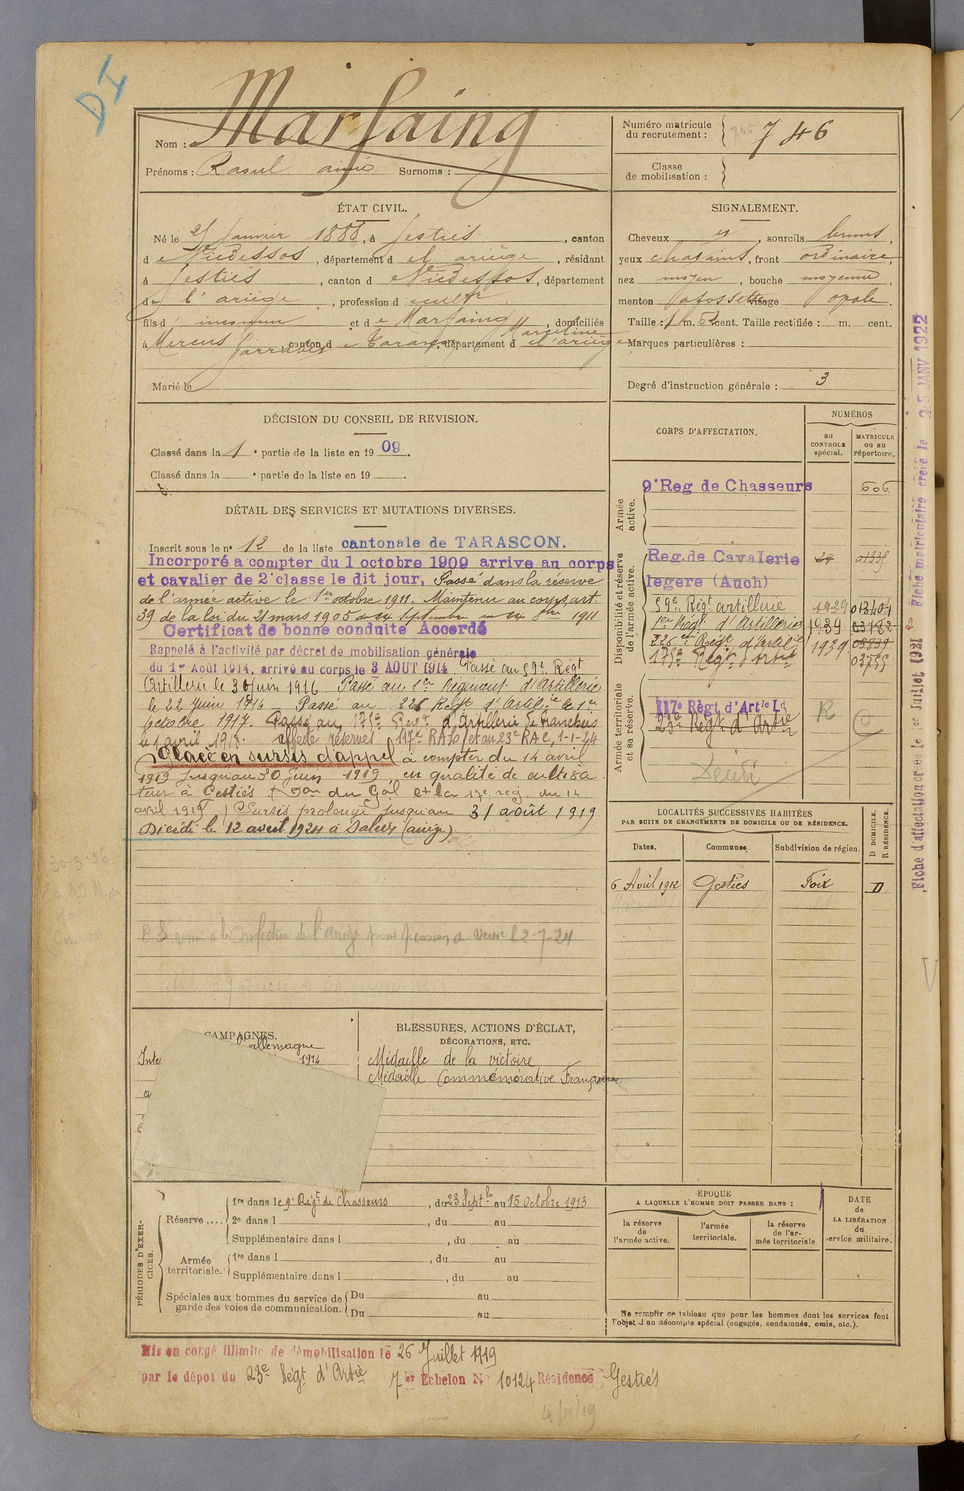 DI
Nom : Marfaing
Prénoms : Raoul aimé Surnoms :
Numéro matricule du recrutement : 746
Classe de mobilisation :
ÉTAT CIVIL.
Né le janvier 1888, à Gestiès, canton
de Vicdessos, département d el ariège, résidant
à Gestiès, canton de Vicdessos, département
de l'ariège, profession de cultr
fils d' inconnu et de Marfaing Marceline, domiciliés
à Mercus Garrabet, canton de Tarascon, département d el'ariège
Marié le
SIGNALEMENT.
Cheveux et, sourcils bruns,
yeux chatains, front ordinaire,
nez moyen, bouche moyenne,
menton à fossette visage ovale.
Taille : 1 m. cent. Taille rectifiée : m. cent.
Marques particulières :
Degré d'instruction générale : 3
DÉCISION DU CONSEIL DE REVISION.
Classé dans la 1e partie de la liste en 1909.
Classé dans la e partie de la liste en 19
DÉTAIL DES SERVICES ET MUTATIONS DIVERSES.
Inscrit sous le n° 12 de la liste cantonale de TARASCON.
Incorporé à compter du 1 octobre 1909 arrive au corps
et cavalier de 2e classe le dit jour, Passé dans la réserve
de l'armée active le 1er octobre 1911. Maintenu au corps, art.
39 de la loi du 21 mars 1905 du 24 septembre au 8bre 1911
Certificat de bonne conduite Accordé
Rappelé à l'activité par décret de mobilisation générale
du 1er Août 1914, arrivé au corps le 3 AOUT 1914 Passé au 59e Régt
Artillerie le 3 juin 1916 Passé au 1er Régiment d'Artillerie
le 22 juin 1916 Passé au 226 Régt d'Artillerie le 1er
octobre 1917. Passé au 175e Régt d'Artillerie de tranchées
le 1 avril 1918. affecté réserves 117e RALo et au 23e RAC, 1-1-24
Placé en sursis d'appel à compter du 14 avril
1919 jusqu'au 30 juin 1919, en qualité de cultiva
teur à Gestiès. du Gal Ct la 17e rég. du 14
avril 1919) Sursis prolongé jusqu'au 31 août 1919
Décédé le 12 avril 1924 à Saleix (ariège)
CORPS D'AFFECTATION.
NUMÉROS
au CONTROLE spécial.
MATRICULE ou au répertoire.
Armée active.
9e Reg de Chasseurs 606
Disponibilité et réserve de l'armée active.
Reg. de Cavalerie
legere (Auch)
59e Régt artillerie
1er Régt d'Artillerie
226 Régt d'Artillerie 1939
175e Régt d'Artie
Armée territoriale et sa réserve.
117e Règt d'Artie Lde
23e Régt d'Artie
R
LOCALITÉS SUCCESSIVES HABITÉES
PAR SUITE DE CHANGEMENTS DE DOMICILE OU DE RÉSIDENCE.
Dates. Communes. Subdivision de région. D DOMICILE. R RÉSIDENCE
6 Avril 1912 Gestiès Foix D
Fiche d'affectation créée le 1er Juillet 1921 Fiche matriculaire créée le 25 JANV 1922
CAMPAGNES.
allemagne
1914
BLESSURES, ACTIONS D'ÉCLAT,
DÉCORATIONS, ETC.
Médaille de la victoire
Médaille Commémorative Française
PÉRIODES D'EXERCICES.
Réserve .... 1re dans le 9e Régt de Chasseurs, du 23 Septbre au 15 Octobre 1913
2e dans l , du au
Supplémentaire dans l , du au
Armée territoriale. 1re dans l , du au
Supplémentaire dans l , du au
Spéciales aux hommes du service de garde des voies de communication. Du au
Du au
EPOQUE
A LAQUELLE L'HOMME DOIT PASSER DANS :
la réserve de l'armée active.
l'armée territoriale.
la réserve de l'armée territoriale
DATE DE LA LIBÉRATION du service militaire.
Ne remplir ce tableau que pour les hommes dont les services font
l'objet d'un décompte spécial (engagés, condamnés, omis, etc.).
Mis en congé illimité de démobilisation le 26 Juillet 1919
par le dépot du 23e Régt d'Artie 7er Echelon No 10124 Résidence Gestiès